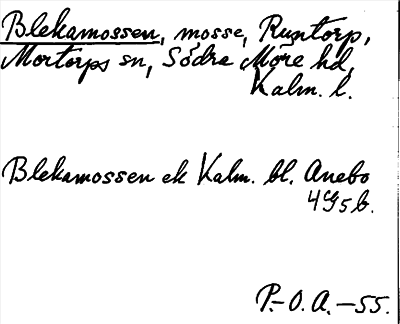 Blekamossen, mosse, Runtorp,
Mortorps sn, Södra Möre hd,
Kalm. l.
Blekamossen ek Kalm. bl. Anebo
4G5b.
P.-O.A.-55.